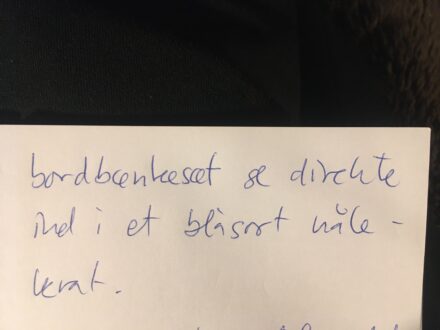 bordbænkesæt se direkte
ind i et blåsort nåle-
krat.